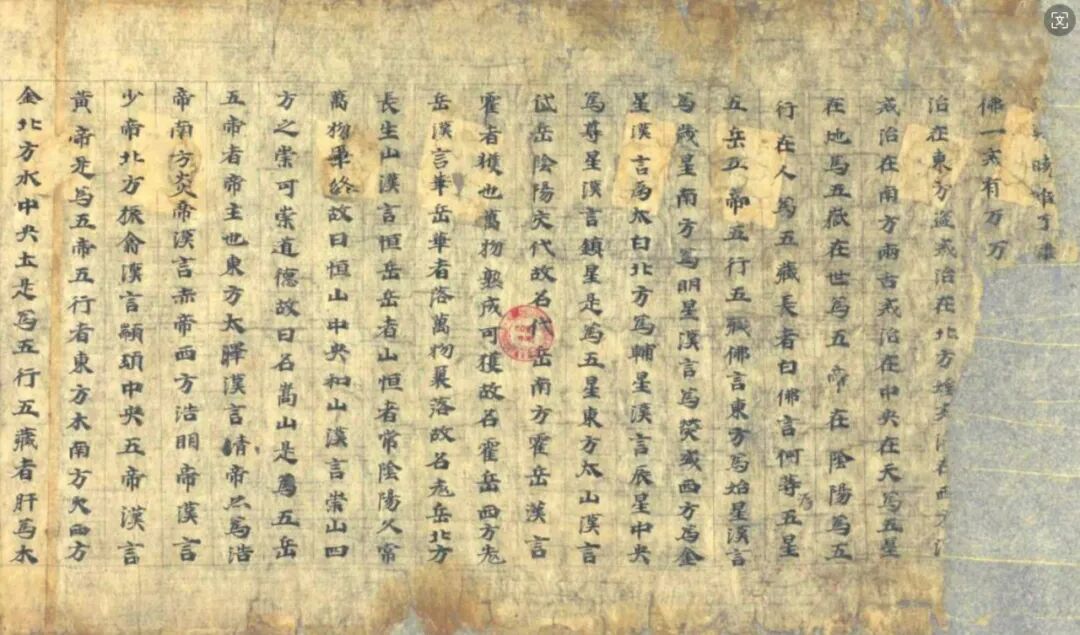 曉
佛一 有万万
治在東方盜戒治在北方婬
戒治在南方兩舌戒治在中央在天為五星
在地為五嶽在世為五帝在陰陽為五
行在人為五藏長者曰佛言何等五星
五岳五帝五行五藏佛言東方為始星漢言
為歲星南方為明星漢言為熒或西方為金
星漢言為太白北方為輔星漢言辰星中央
為尊星漢言鎮星是為五星東方太山漢言
岳陰陽交代故名代岳南方霍岳漢言
霍者獲也萬物熟成可獲故名霍岳西方
岳漢言華岳華者落萬物衰落故名 岳北方
長生山漢言恒岳岳者山恒者常陰陽久常
萬物畢終故曰恒山中央 山漢言崇山四
方之崇可崇道德故曰名嵩山是為五岳
五帝者帝主也東方太 漢言情帝 為浩
帝南方炎帝漢言赤帝西方浩明帝漢言
少帝北方振翕漢言顓頊中央五帝漢言
黃帝是為五帝五行者東方木南方火西方
金北方水中央土是為五行五藏者肝為木